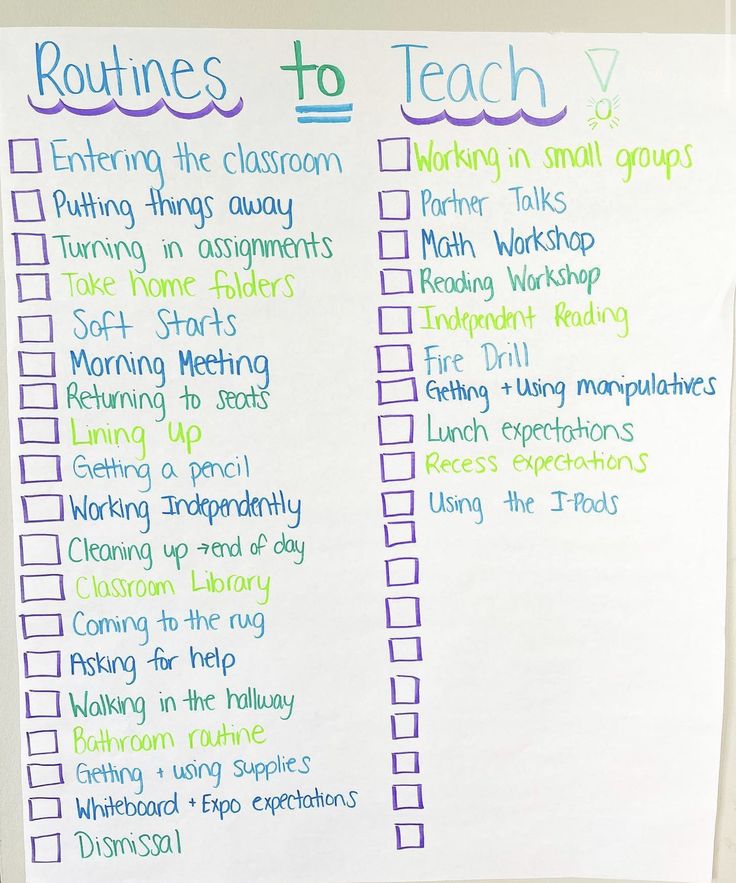 Routines to Teach!
Entering the classroom
Putting things away
Turning in assignments
Take home folders
Soft Starts
Morning Meeting
Returning to seats
Lining Up
Getting a pencil
Working Independently
Cleaning up → end of day
Classroom Library
Coming to the rug
Asking for help
Walking in the hallway
Bathroom routine
Getting + using supplies
Whiteboard + Expo expectations
Dismissal
Working in small groups
Partner Talks
Math Workshop
Reading Workshop
Independent Reading
Fire Drill
Getting + Using manipulatives
Lunch expectations
Recess expectations
Using the I-Pads